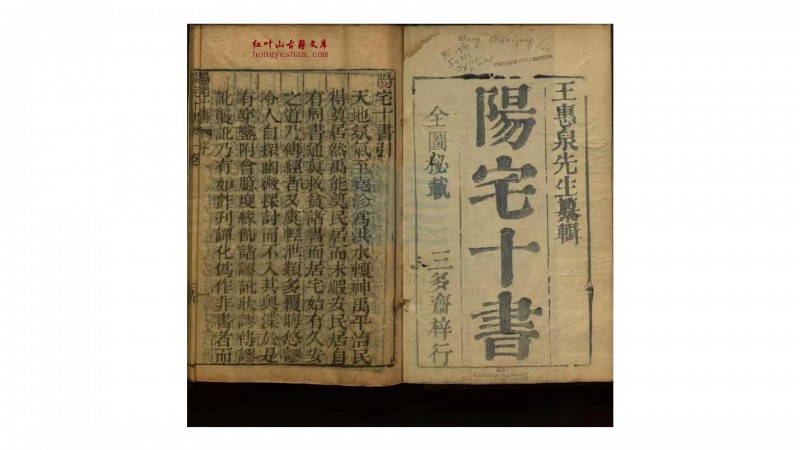 红叶山古籍文库
hongyeshan.com
王惠泉先生纂輯
陽宅十書
全圖秘載
三多齋梓行
Wang, Chün-jung
陽宅十書引
天地氛氣至堯沴爲洪水賴神禹平治民
得奠居然禹能奠民居而未暇安民居自
有周書通真救貧諸書而居宅始有久安
之道乃傳經者又爽輕泄類多覆晦悠謬
令人自探幽微探討而不入其奥渫於是
有穿鑿附會臆度緣飾諸謬訛狀謬傳謬
訛襲訛乃有如詐刋譚化僞作非書者而